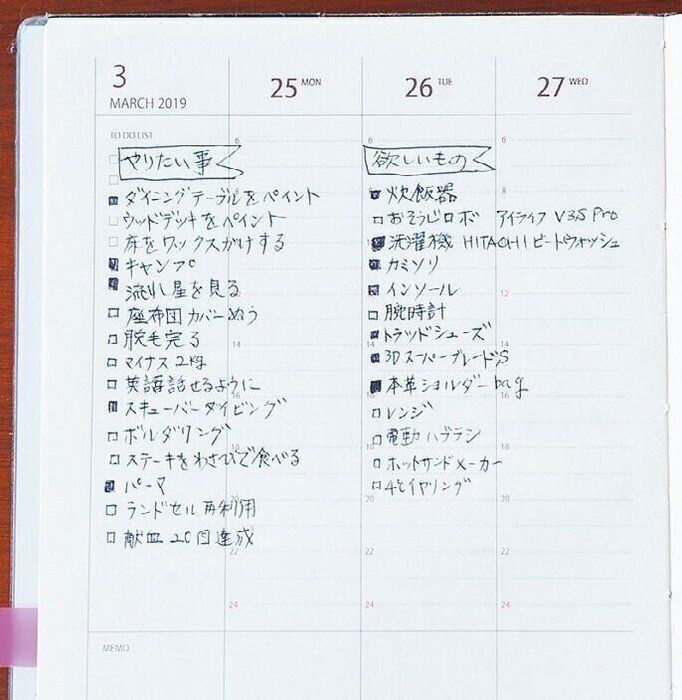 3
MARCH 2019
25 MON
26 TUE
27 WED
TO DO LIST
やりたい事
ダイニングテーブルをペイント
ウッドデッキをペイント
床をワックスがけする
キャンプ
流れ星を見る
座布団カバーぬう
脱毛完了
マイナス2kg
英語話せるように
スキューバーダイビング
ボルダリング
ステーキをわさびで食べる
パーマ
ランドセル再利用
献血20回達成
欲しいもの
炊飯器
おそうじロボ アイライフ V3S Pro
洗濯機 HITACHI ビートウォッシュ
カミソリ
インソール
腕時計
トラッドシューズ
3DスーパーブレードS
本革ショルダーbag
レンジ
電動ハブラシ
ホットサンドメーカー
4℃イヤリング
6
6
6
8
12
12
14
14
14
16
18
20
20
20
22
22
22
24
24
24
MEMO